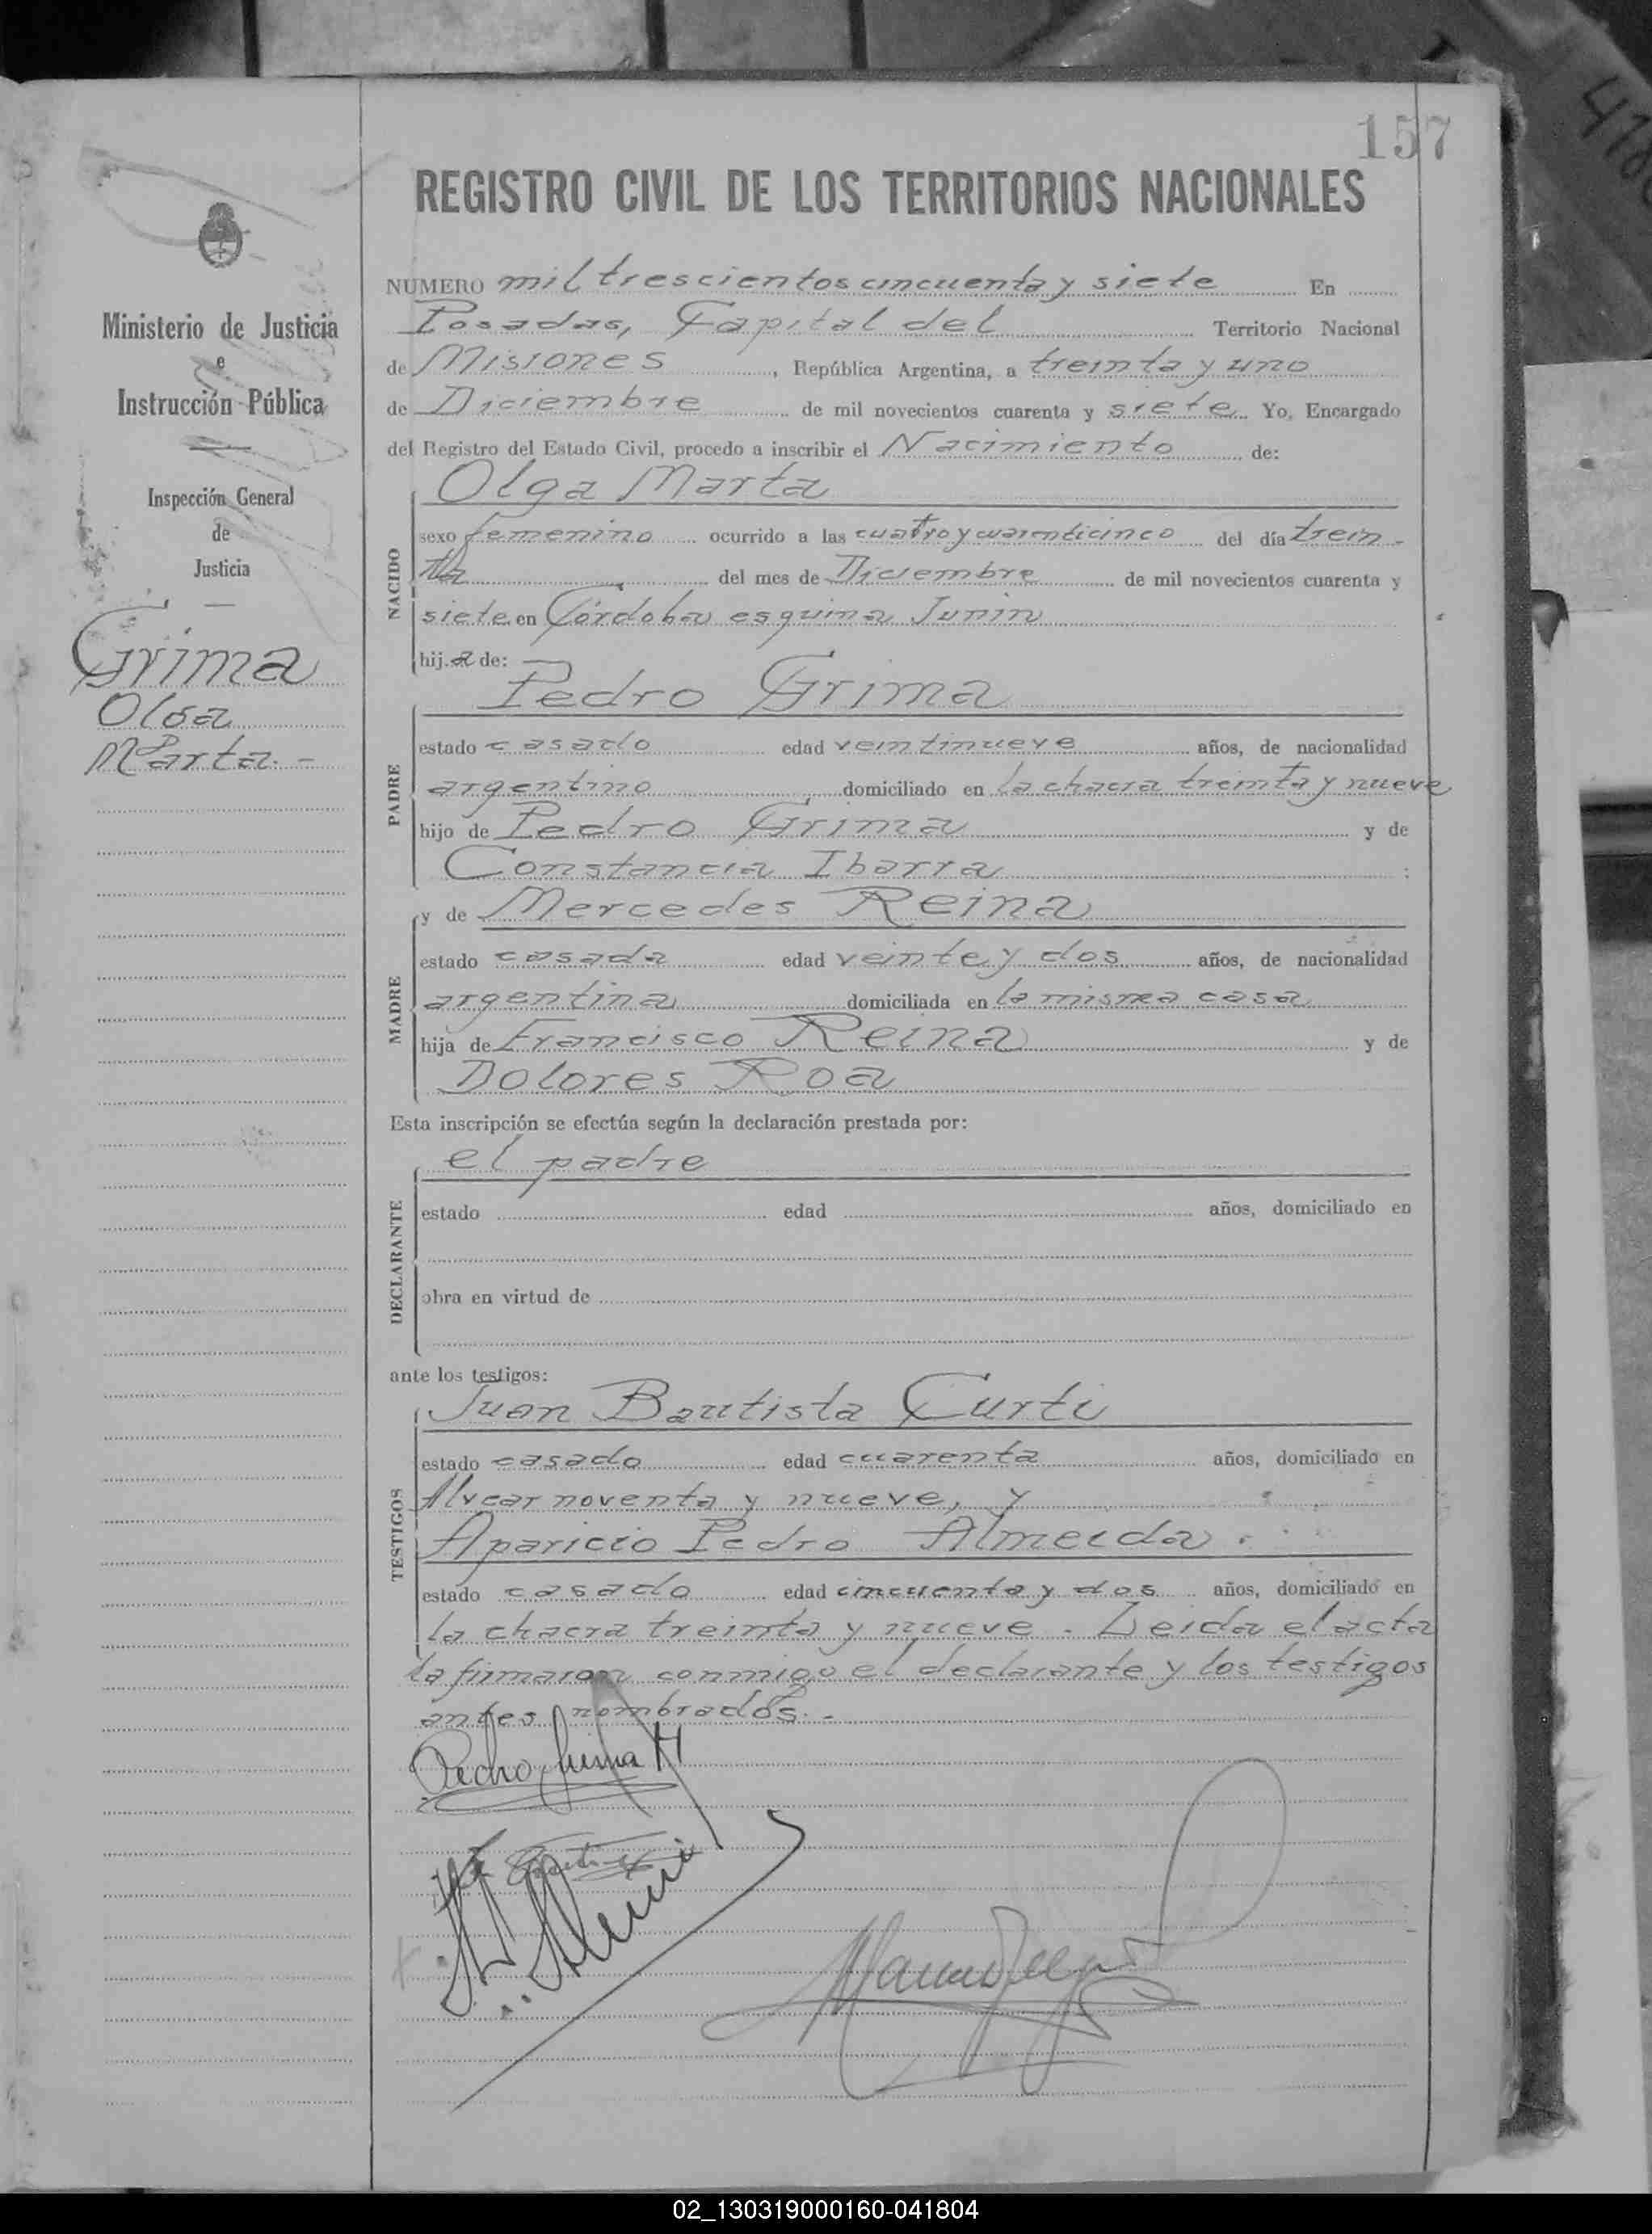 157
REGISTRO CIVIL DE LOS TERRITORIOS NACIONALES
Ministerio de Justicia
e
Instrucción Pública
Inspección General
de
Justicia
Grima
Olga
Marta.-
NUMERO mil trescientos cincuenta y siete En
Posadas, Capital del Territorio Nacional
de Misiones, República Argentina, a treinta y uno
de Diciembre de mil novecientos cuarenta y siete Yo, Encargado
del Registro del Estado Civil, procedo a inscribir el Nacimiento de:
NACIDO
Olga Marta
sexo femenino ocurrido a las cuatro y cuarenticinco del día trein-
ta del mes de Diciembre de mil novecientos cuarenta y
siete en Córdoba esquina Junin
hija de:
PADRE
Pedro Grima
estado casado edad veintinueve años, de nacionalidad
argentino domiciliado en la chacra treinta y nueve
hijo de Pedro Grima y de
Constancia Ibarra :
MADRE
y de Mercedes Reina
estado casada edad veinte y dos años, de nacionalidad
argentina domiciliada en la misma casa
hija de Francisco Reina y de
Dolores Roa
Esta inscripción se efectúa según la declaración prestada por:
DECLARANTE
el padre
estado edad años, domiciliado en
obra en virtud de
ante los testigos:
TESTIGOS
Juan Bautista Curti
estado casado edad cuarenta años, domiciliado en
Alvear noventa y nueve, y
Aparicio Pedro Almeida.
estado casado edad cincuenta y dos años, domiciliado en
la chacra treinta y nueve. Leida el acta
la firmaron conmigo el declarante y los testigos
antes nombrados.-
Pedro Grima H
02_130319000160-041804